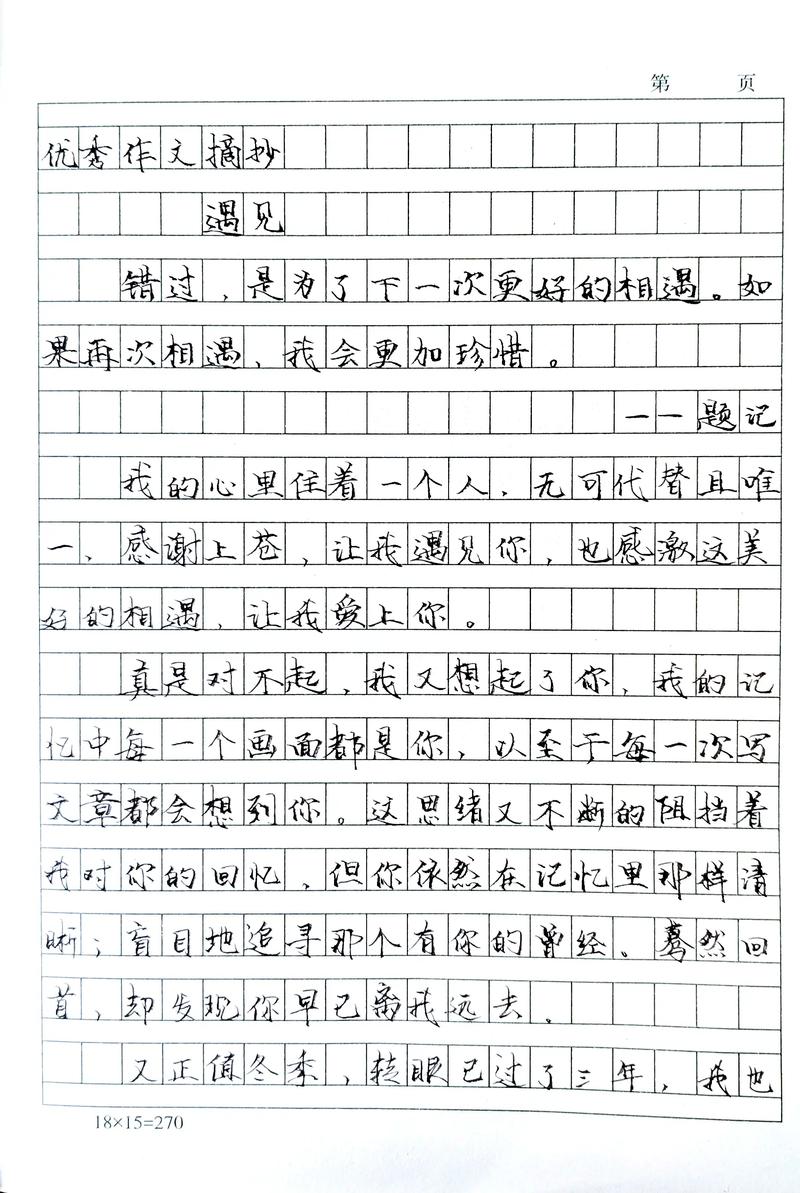 第 页
优秀作文摘抄
遇见
错过，是为了下一次更好的相遇。如
果再次相遇，我会更加珍惜。
——题记
我的心里住着一个人，无可代替且唯
一、感谢上苍，让我遇见你，也感激这美
好的相遇，让我爱上你。
真是对不起，我又想起了你，我的记
忆中每一个画面都是你，以至于每一次写
文章都会想到你。这思绪又不断的阻挡着
我对你的回忆，但你依然在记忆里那样清
晰；盲目地追寻那个有你的曾经。蓦然回
首，却发现你早已离我远去。
又正值冬季，转眼已过了三年，我也
18×15=270